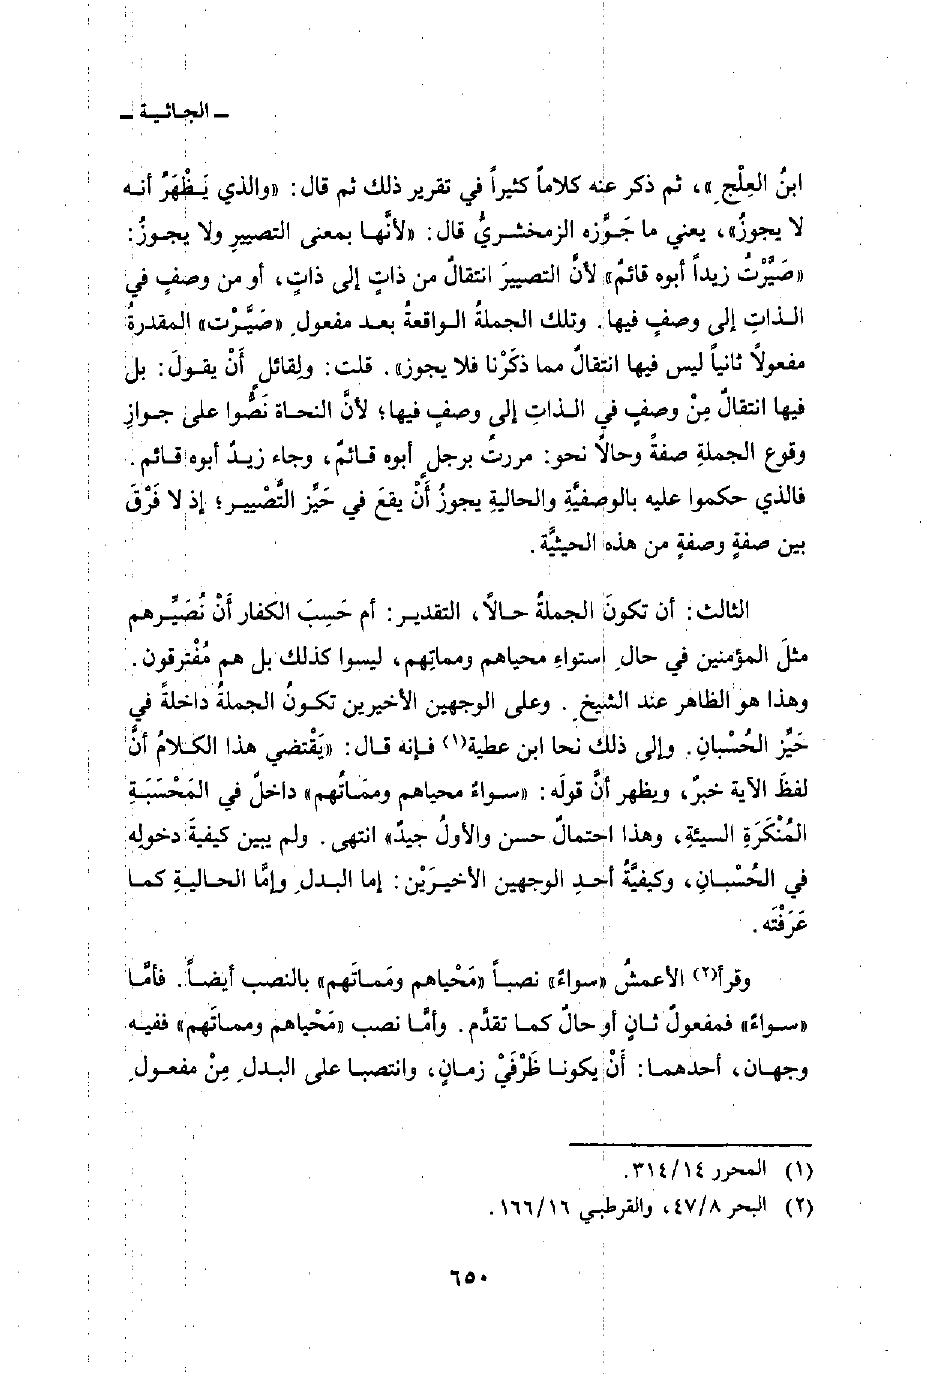 ـ الجاثية ـ
ابنُ العِلْجِ»، ثم ذكر عنه كلاماً كثيراً في تقرير ذلك ثم قال: «والذي يَظْهَرُ أنه
لا يجوزُ»، يعني ما جَوَّزه الزمخشريُّ قال: «لأنَّها بمعنى التصييرِ ولا يجوزُ:
«صَيَّرْتُ زيداً أبوه قائمٌ» لأنَّ التصييرَ انتقالٌ من ذاتٍ إلى ذاتٍ، أو من وصفٍ في
الذاتِ إلى وصفٍ فيها. وتلك الجملةُ الواقعةُ بعد مفعولِ «صَيَّرْت» المقدرةُ
مفعولاً ثانياً ليس فيها انتقالٌ مما ذكَرْنا فلا يجوز». قلت: ولِقائلٍ أَنْ يقولَ: بل
فيها انتقالٌ مِنْ وصفٍ في الذاتِ إلى وصفٍ فيها؛ لأنَّ النحاة نَصُّوا على جوازِ
وقوع الجملةِ صفةً وحالاً نحو: مررتُ برجلٍ أبوه قائمٌ، وجاء زيدٌ أبوه قائم.
فالذي حكموا عليه بالوصفيَّةِ والحالية يجوزُ أَنْ يقعَ في حَيِّز التَّصْيير؛ إذ لا فَرْقَ
بين صفةٍ وصفةٍ من هذه الحيثيَّة.
الثالث: أن تكونَ الجملةُ حالاً، التقدير: أم حَسِبَ الكفار أَنْ نُصَيِّرهم
مثلَ المؤمنين في حالِ استواءِ محياهم ومماتِهم، ليسوا كذلك بل هم مُفْترقون.
وهذا هو الظاهر عند الشيخِ. وعلى الوجهين الأخيرين تكونُ الجملةُ داخلةً في
حَيِّز الحُسْبانِ. وإلى ذلك نحا ابن عطية(١) فإنه قال: «يَقْتضي هذا الكلامُ أنَّ
لفظَ الآية خبرٌ، ويظهر أنَّ قولَه: «سواءٌ محياهم ومماتُهم» داخلٌ في المَحْسَبَةِ
المُنْكَرَةِ السيئةِ، وهذا احتمالٌ حسن والأولُ جيدٌ» انتهى. ولم يبين كيفيةَ دخولِه
في الحُسْبانِ، وكيفيَّةُ أحدِ الوجهين الأخيرَيْن: إما البدلِ وإمَّا الحاليةِ كما
عَرَفْتَه.
وقرأ(٢) الأعمشُ «سواءً» نصباً «مَحْياهم ومَماتَهم» بالنصب أيضاً. فأمَّا
«سواءً» فمفعولٌ ثانٍ أو حالٌ كما تقدَّم. وأمَّا نصب «مَحْياهم ومماتَهم» ففيه
وجهان، أحدهما: أَنْ يكونا ظَرْفَيْ زمانٍ، وانتصبا على البدلِ مِنْ مفعولِ
(١) المحرر ٣١٤/١٤.
(٢) البحر ٤٧/٨، والقرطبي ١٦٦/١٦.
٦٥٠